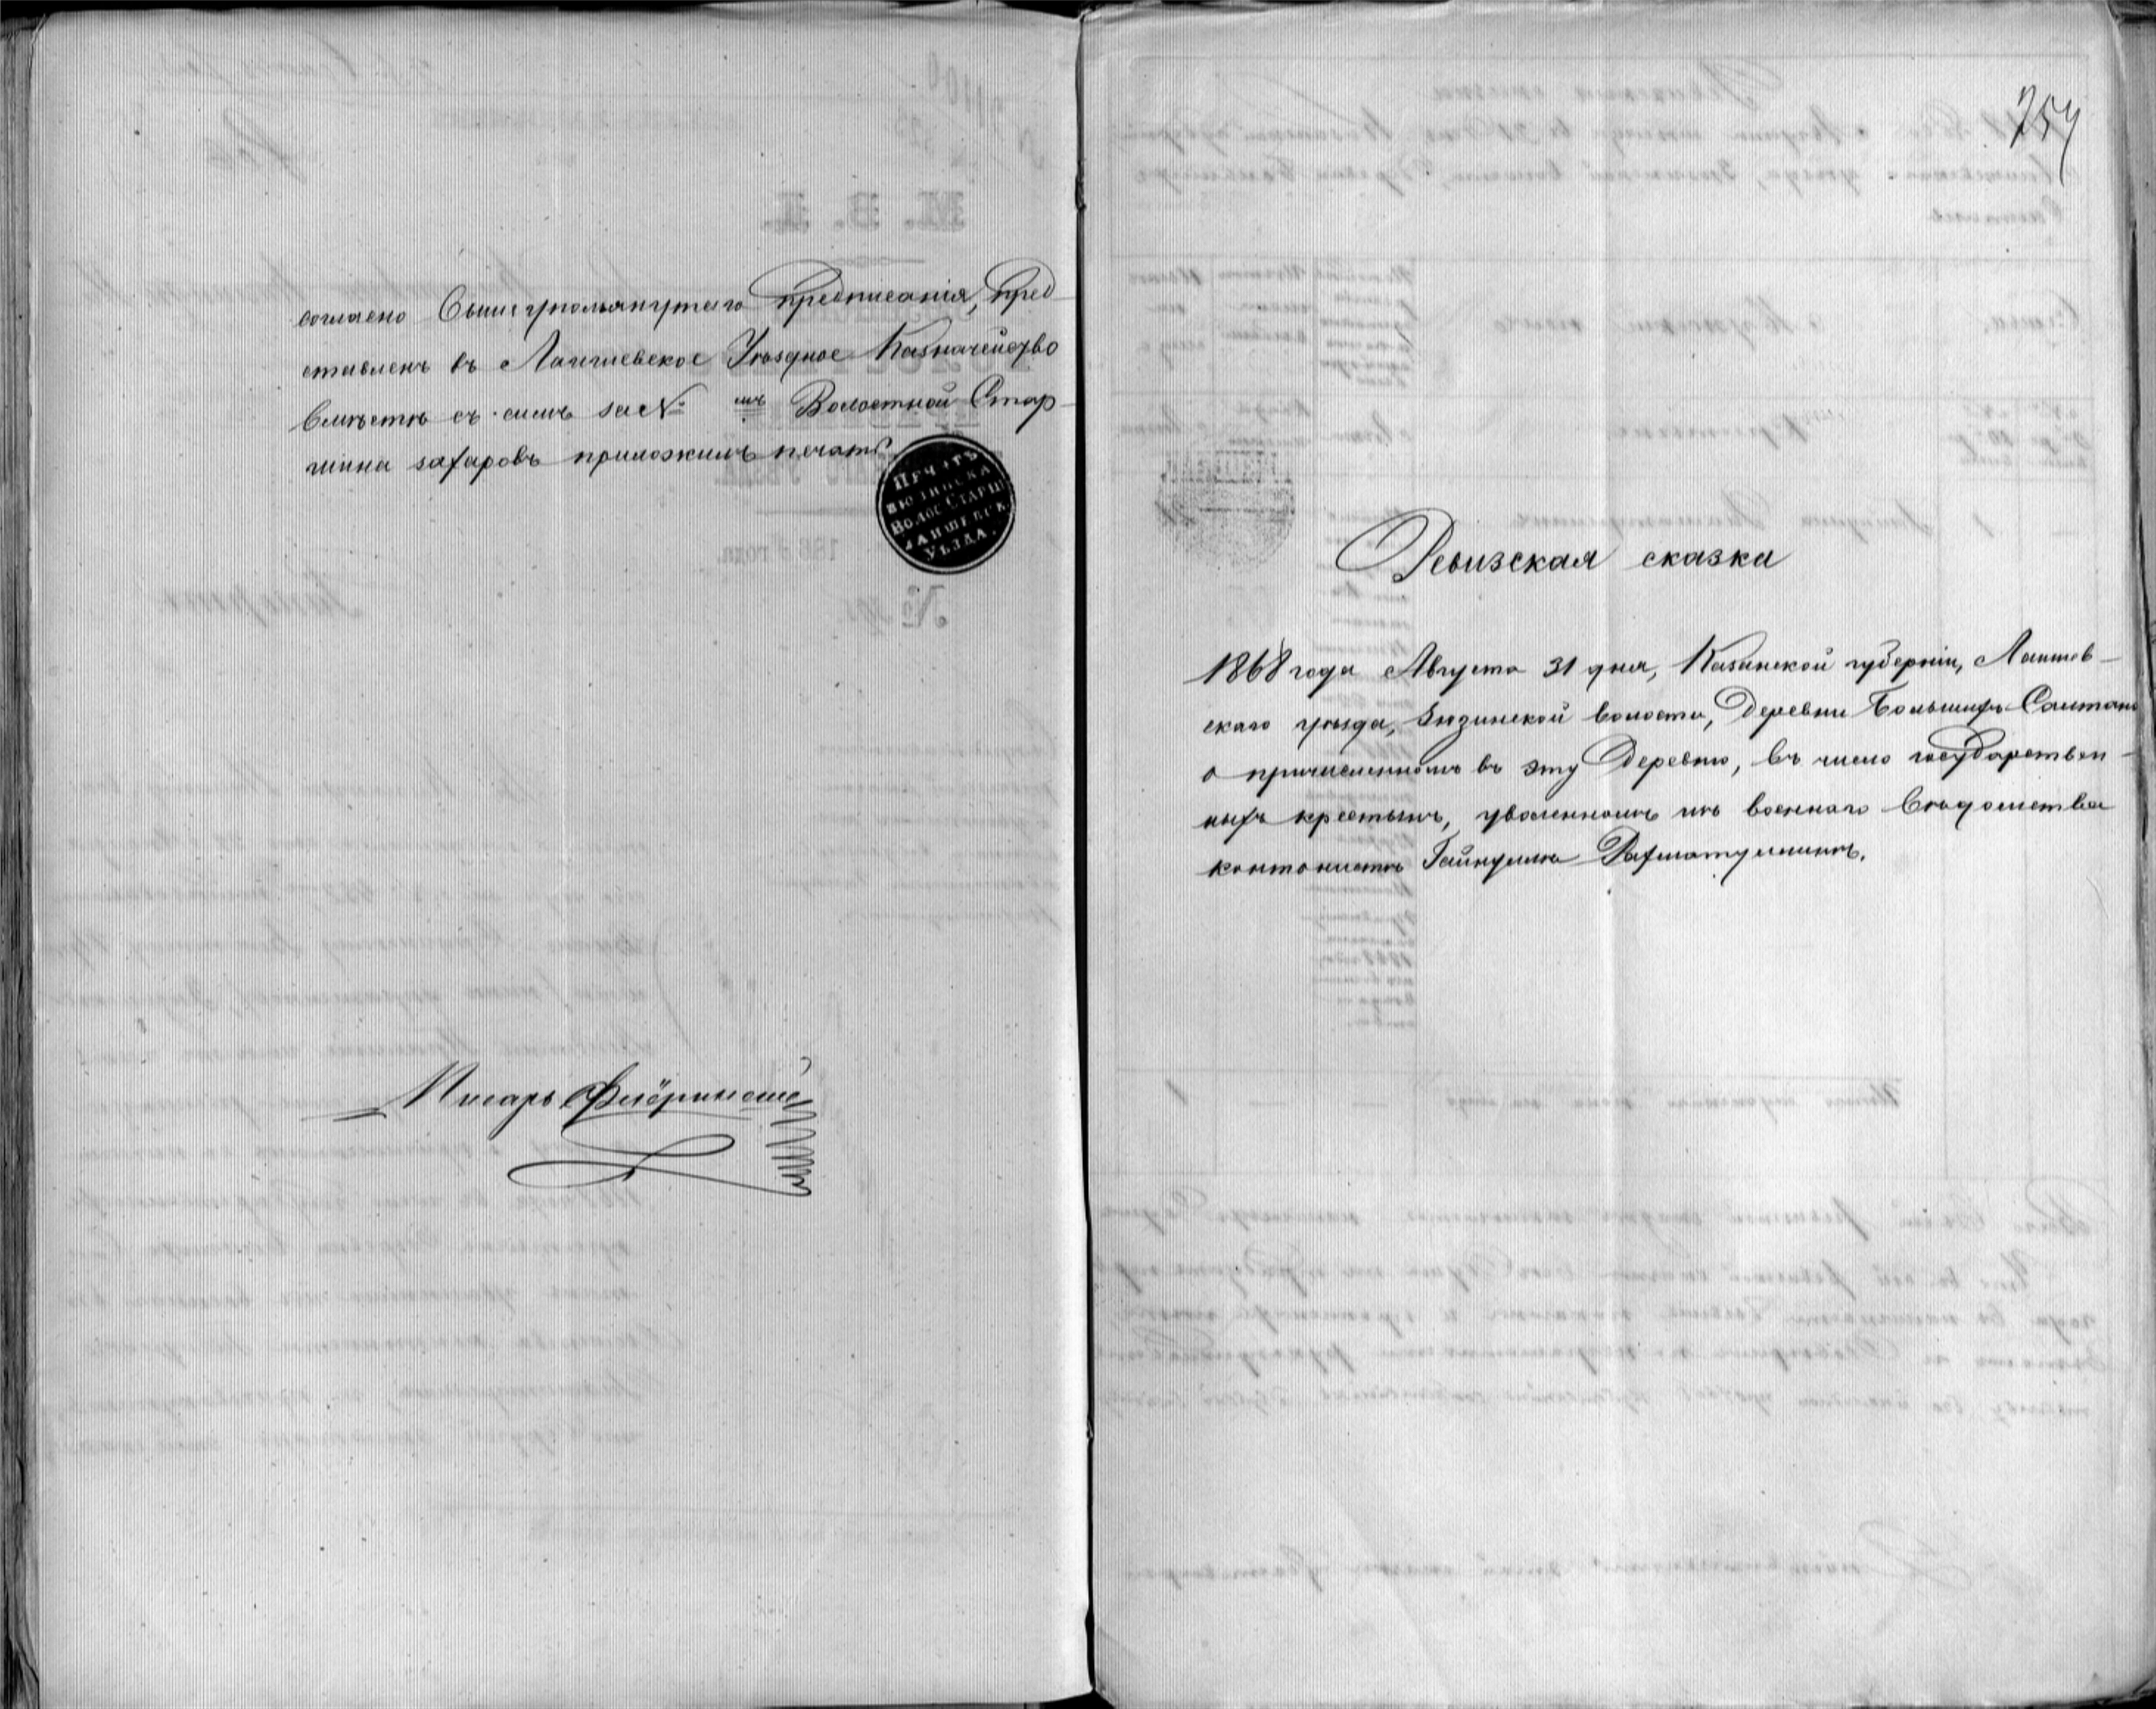 согласно вышеупомянутаго предписанія, пред-
ставленъ въ Лаишевское Уѣздное Казначейство
вместѣ съ симъ за № мъ Волостной Стар-
шина Захаровъ приложилъ печать
ПЕЧАТЬ
ЗЮЗИНСКА
ВОЛОС. СТАРШ
ЛАИШЕВСК.
УѢЗДА.
Писарь
754
Ревизская сказка
1868 года Августа 31 дня, Казанской губерніи, Лаишев-
скаго уѣзда, Зюзинской волости, Деревни Большихъ Салтанъ
о причисленномъ въ эту Деревню, въ число государствен-
ныхъ крестьянъ, уволенномъ изъ военнаго вѣдомства
кантонистѣ Гайнулла Рахматуллинъ.